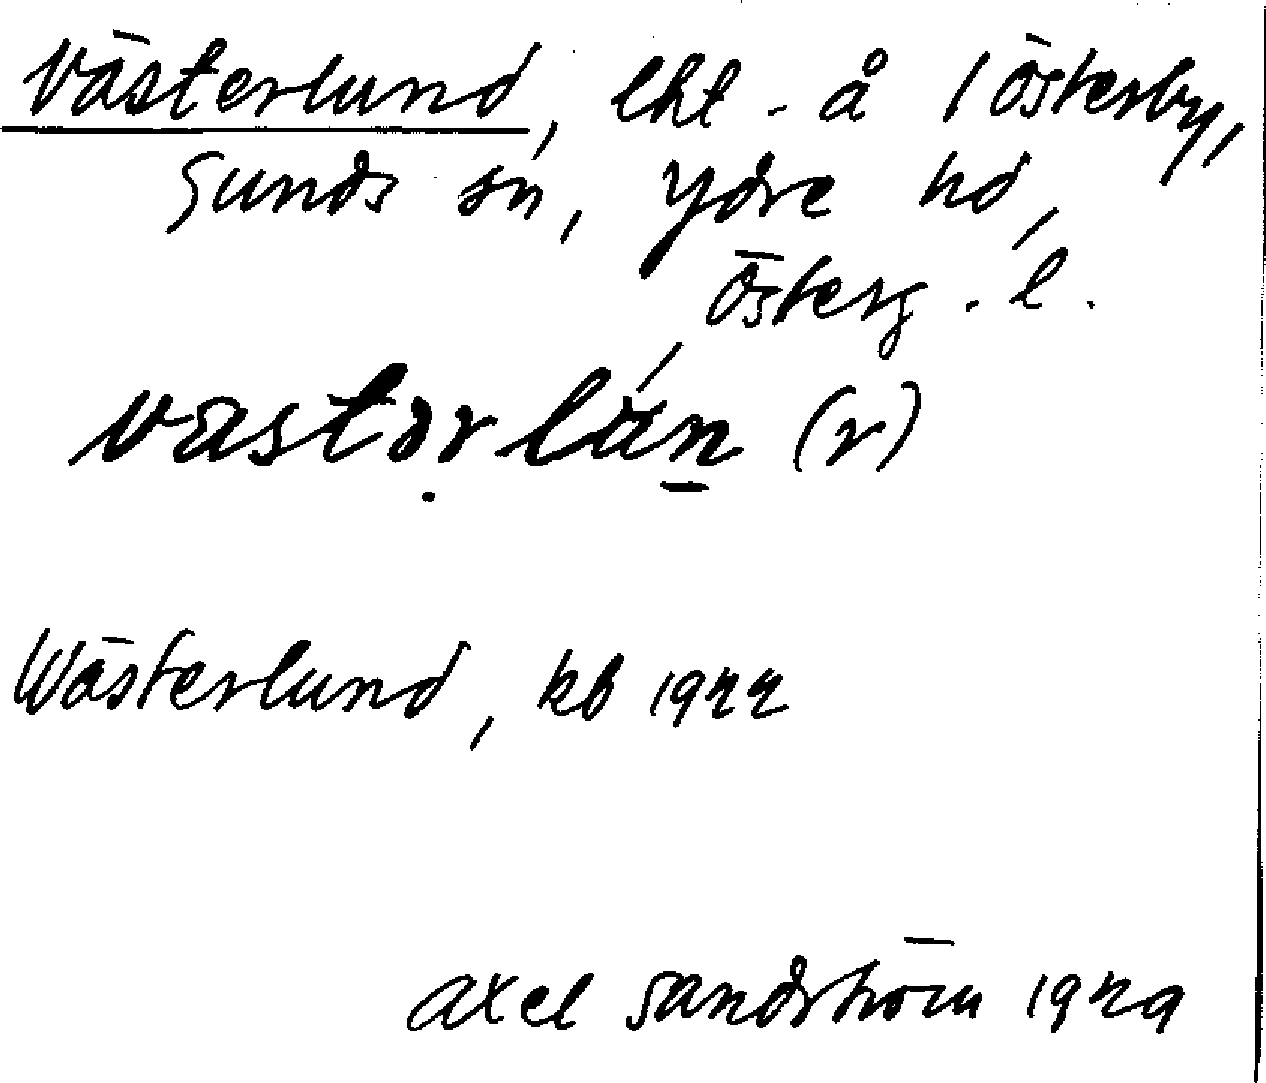 Västerlund, lht. å 1 Österby,
Sunds sn, Ydre hd,
Österg. l.
västərlún (r)
Wästerlund, kb 1922
Axel Sandström 1929